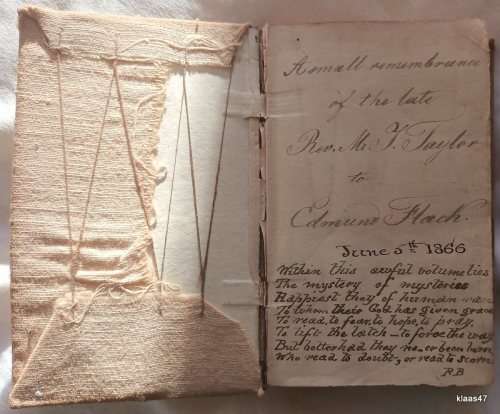 A small remembrance
of the late
Rev. Mr. T. Taylor
to
Edmund Flach.
June 5th 1866
Within this awful volume lies
The mystery of mysteries
Happiest they of human race
To whom their God has given grace
To read, to fear, to hope, to pray.
To lift the latch - to force the way
But better had they ne'er been born
Who read to doubt, or read to scorn.
R B
klaas47